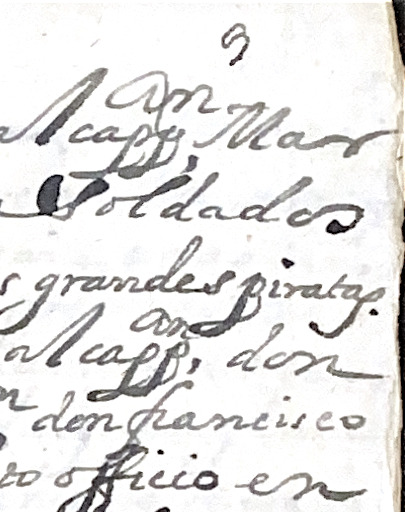 9
al capp.an Mar
soldados
s grandes piratas.
al capp.an, don
n don francisco
officio en